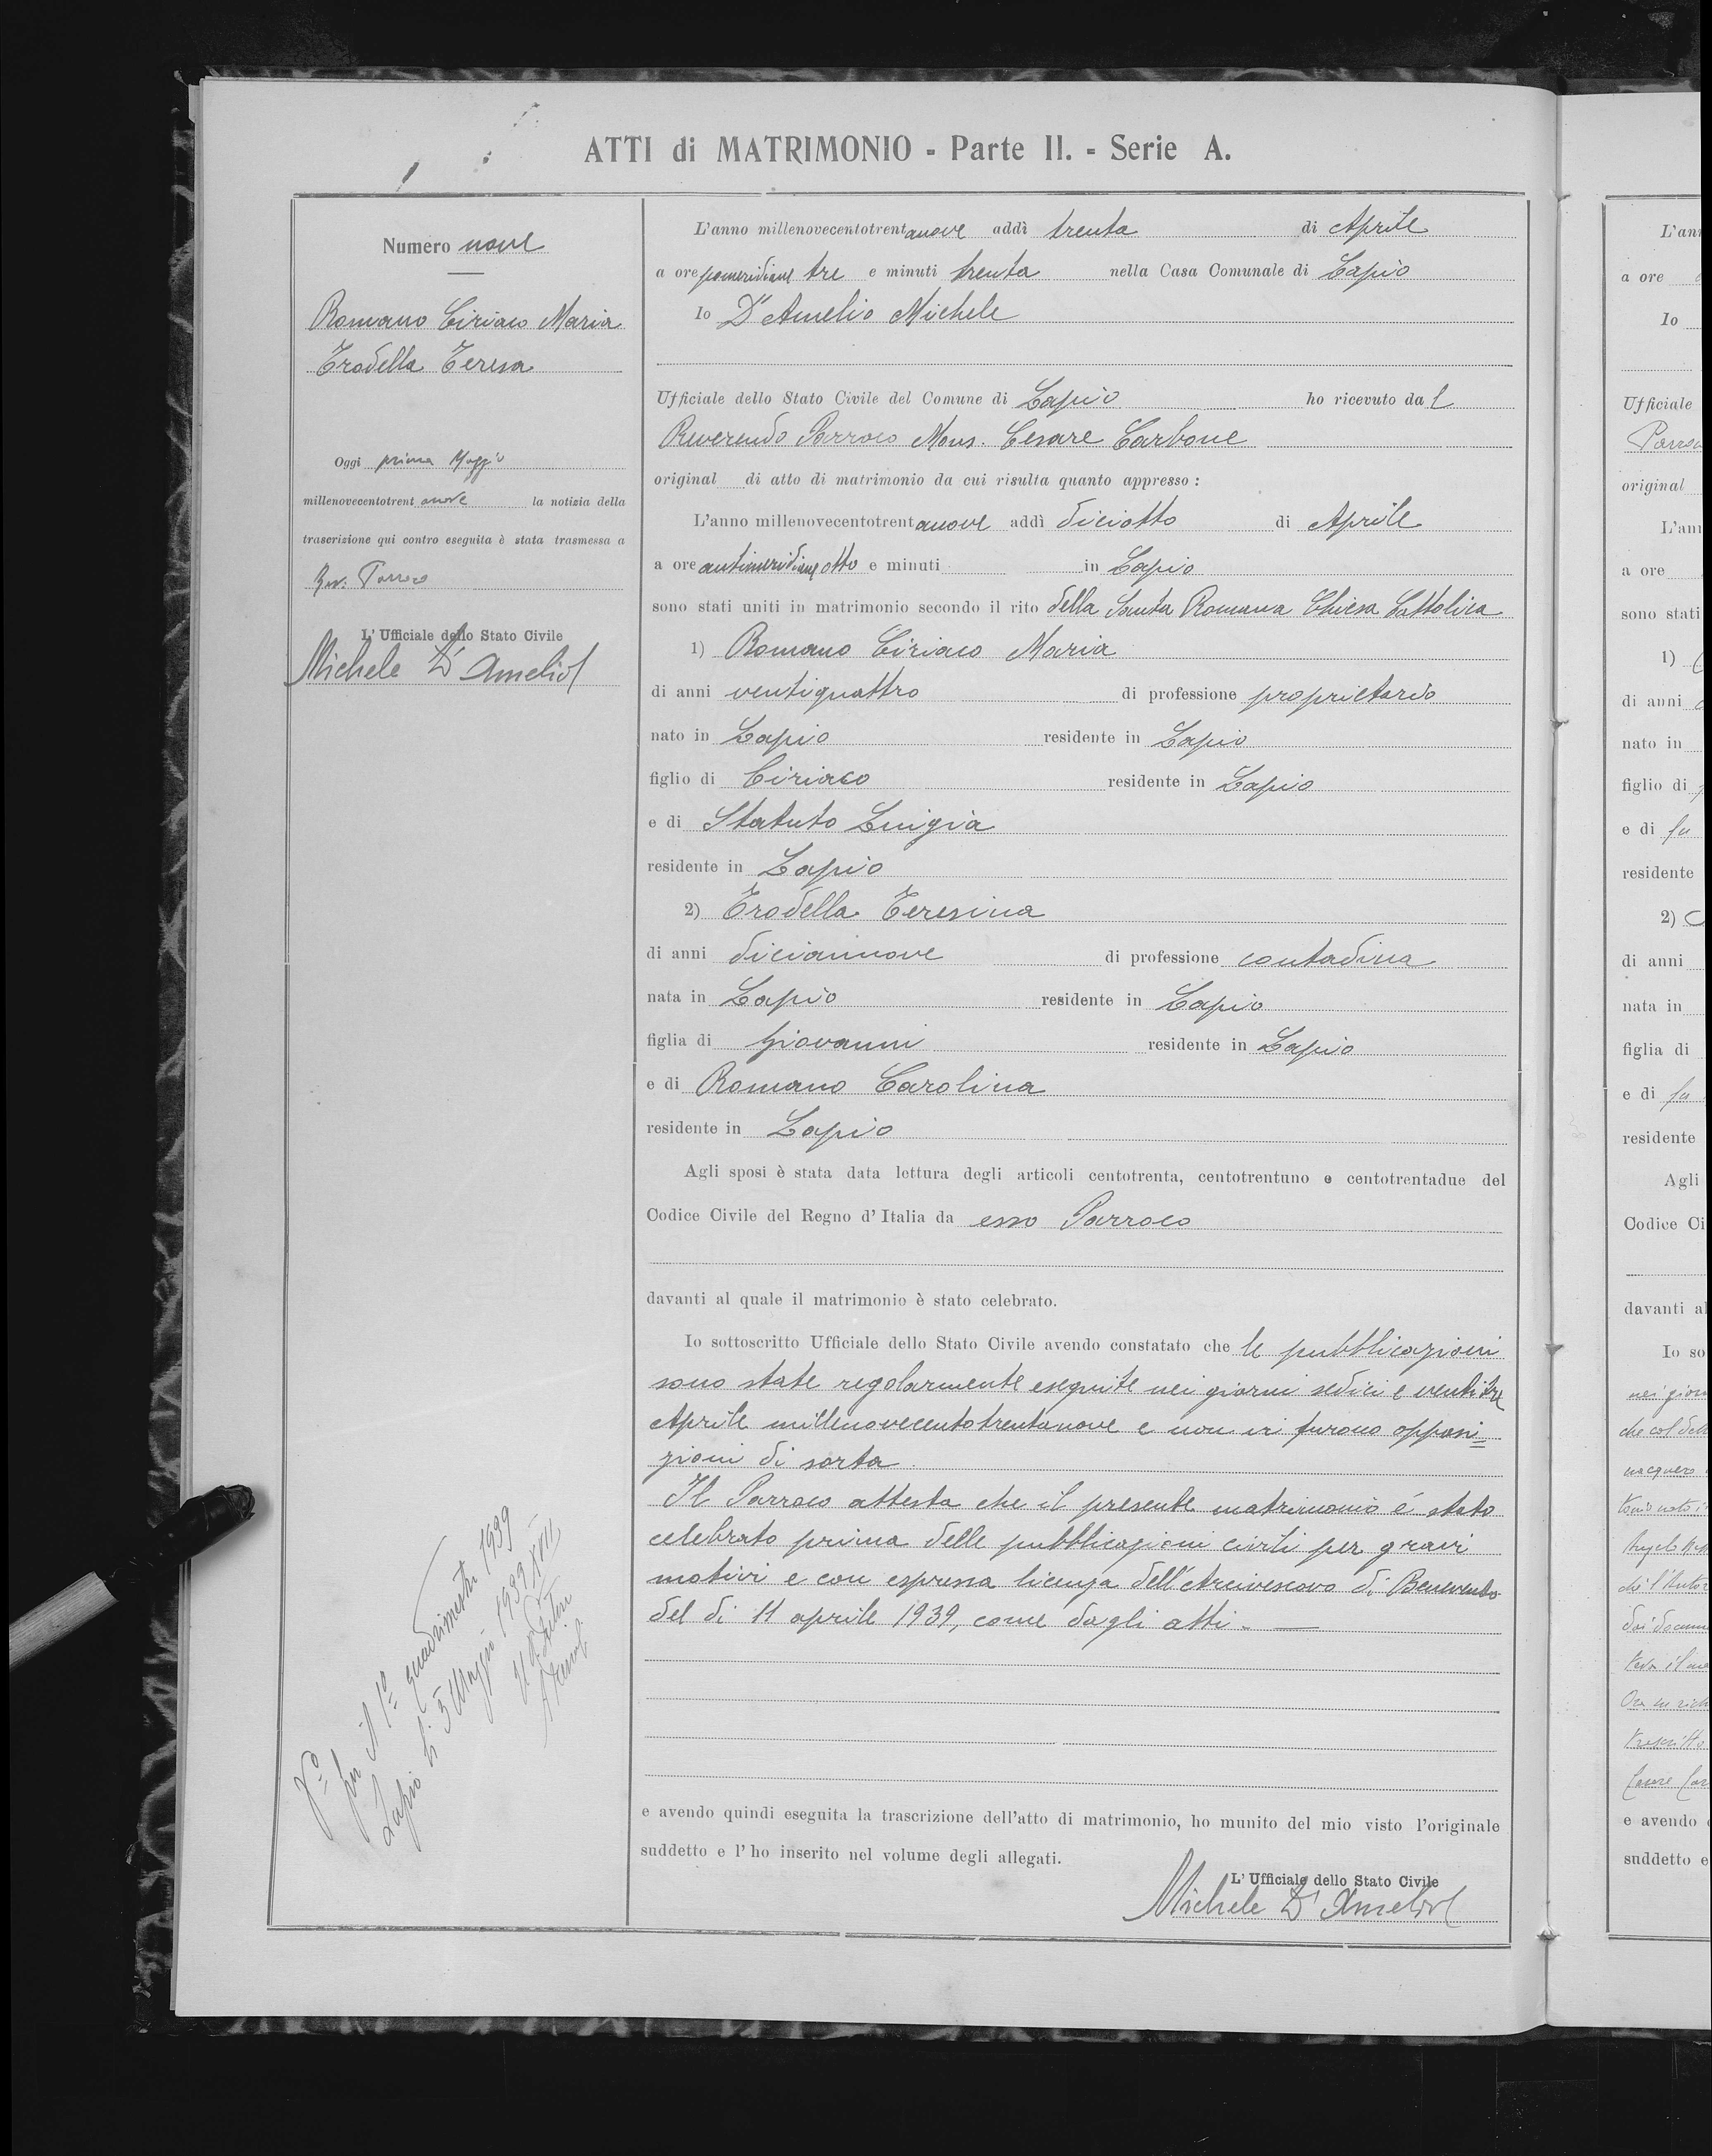 ATTI di MATRIMONIO - Parte II. - Serie A.
Numero nove
Romano Ciriaco Maria
Trodella Teresa
Oggi primo Maggio
millenovecentotrentanove la notizia della
trascrizione qui contro eseguita è stata trasmessa a
Rev. Parroco
L'Ufficiale dello Stato Civile
Michele D'Amelio
Vo
per il 1o quadrimestre 1939
Lapio li 5 Maggio 1939 XVII
Il
L'anno millenovecentotrentanove addì trenta di Aprile
a ore pomeridiane tre e minuti trenta nella Casa Comunale di Lapio
Io D'Amelio Michele
Ufficiale dello Stato Civile del Comune di Lapio ho ricevuto dal
Reverendo Parroco Mons. Cesare Carbone
original di atto di matrimonio da cui risulta quanto appresso:
L'anno millenovecentotrentanove addì diciotto di Aprile
a ore antimeridiane otto e minuti in Lapio
sono stati uniti in matrimonio secondo il rito della Santa Romana Chiesa Cattolica
1) Romano Ciriaco Maria
di anni ventiquattro di professione proprietario
nato in Lapio residente in Lapio
figlio di Ciriaco residente in Lapio
e di Statuto Luigia
residente in Lapio
2) Trodella Teresina
di anni diciannove di professione contadina
nata in Lapio residente in Lapio
figlia di Giovanni residente in Lapio
e di Romano Carolina
residente in Lapio
Agli sposi è stata data lettura degli articoli centotrenta, centotrentuno e centotrentadue del
Codice Civile del Regno d'Italia da esso Parroco
davanti al quale il matrimonio è stato celebrato.
Io sottoscritto Ufficiale dello Stato Civile avendo constatato che le pubblicazioni
sono state regolarmente eseguite nei giorni sedici e ventitre
Aprile millenovecentotrentanove e non vi furono opposi=
zioni di sorta.
Il Parroco attesta che il presente matrimonio é stato
celebrato prima delle pubblicazioni civili per gravi
motivi e con espressa licenza dell'Arcivescovo di Benevento
del di 11 aprile 1939, come dagli atti. —
e avendo quindi eseguita la trascrizione dell'atto di matrimonio, ho munito del mio visto l'originale
suddetto e l'ho inserito nel volume degli allegati.
L'Ufficiale dello Stato Civile
Michele D'Amelio
L'an
a ore
Io
Ufficiale
Parroco
original
L'ann
a ore
sono stati
1)
di anni
nato in
figlio di
e di fu
residente
2)
di anni
nata in
figlia di
e di fu
residente
Agli
Codice Ci
davanti al
Io so
nei giorn
che col
nacquero
e avendo
suddetto e